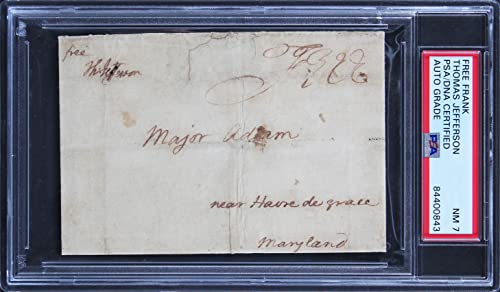 free
Th: Jefferson
Free
Major Adlum
near Havre de grace
Maryland
FREE FRANK
THOMAS JEFFERSON
PSA/DNA CERTIFIED
AUTO GRADE
PSA
NM 7
84400843